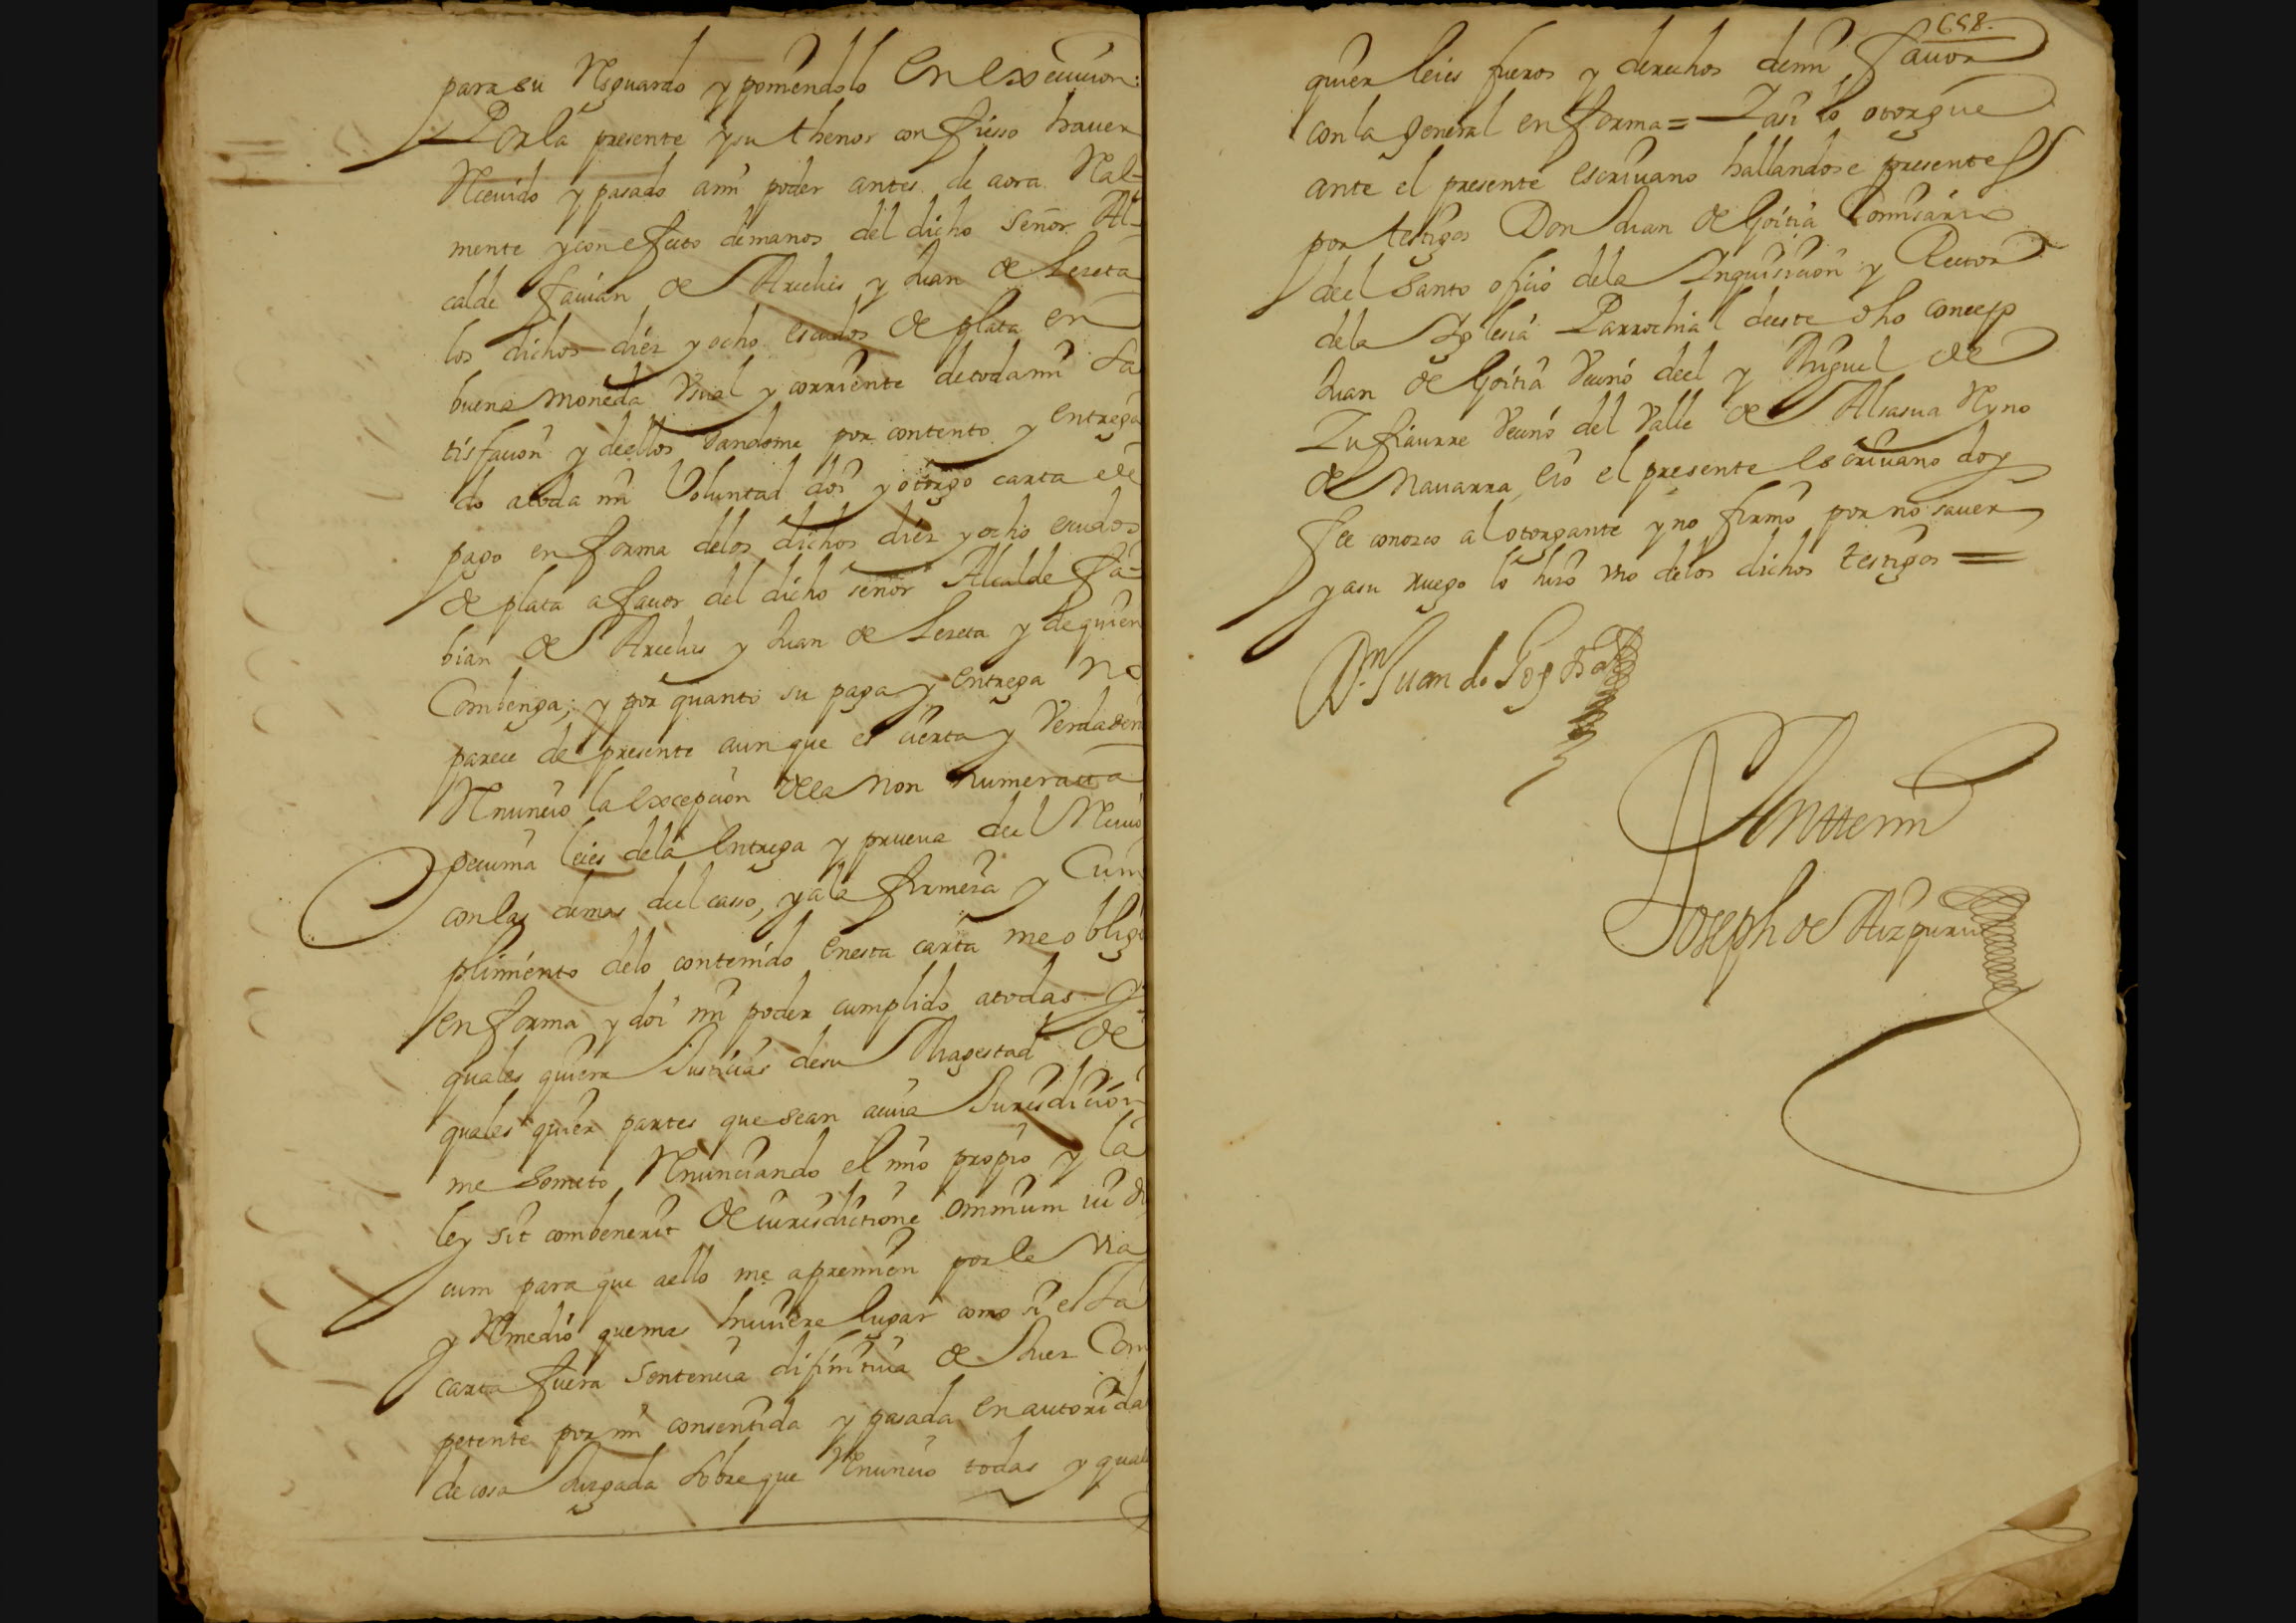 para su Resguardo y poniendolo en execucion:
Por la presente y su thenor confiesso hauer
Receuido y pasado a mi poder antes de aora Real-
mente y con efecto de manos del dicho señor Al-
calde fauian de Areches y Juan de Lereta
los dichos diez y ocho escudos de plata en
buena moneda Vsual y corriente de toda mi sa
tisfacion y de ellos dandome por contento y entrega
do a toda mi Voluntad doi y otorgo carta de
pago en forma de los dichos diez y ocho escudos
de plata a fauor del dicho señor Alcalde fa-
bian de Areches y Juan de Lereta y de quien
Combenga; y por quanto su paga y entrega no
parece de presente aunque es cierta y Verdadera
Renuncio la excepcion de la non numerata
pecunia leies de la entrega y prueua del Reciuo
con las demas del casso, y a la firmeza y Cum
plimiento de lo contenido en esta carta me obligo
en forma y doi mi poder cumplido a todas y
quales quiera Justicias de su Magestad de
quales quier partes que sean a cuia Jurisdicion
me someto Renunciando el mio propio y la
ley sit combenerit de iurisdictione omnium iudi
cum para que a ello me apremien por la via
y Remedio que mas huuiere lugar como si esta
carta fuera sentencia difinitiua de Juez Com
petente por mi consentida y pasada en autorida
de cosa Juzgada sobre que Renuncio todas y quales
658.
quier leies fueros y derechos de mi fauor
con la general en forma = Y asi lo otorgue
ante el presente escriuano hallandose presentes
por testigos Don Juan de Goitia Comisario
del santo oficio de la Inquisicion y Rector
de la Iglesia Parrochial de este dho concejo
Juan de Goitia Vecino de el y Miguel de
Vecino del Valle de Alsasua Reyno
de Nauarra, e io el presente escriuano doy
fee conozco al otorgante y no firmo por no sauer
y a su ruego lo hizo vno de los dichos testigos =
Dn. Juan de Goytia
Ante mi
Joseph de Aizpuru